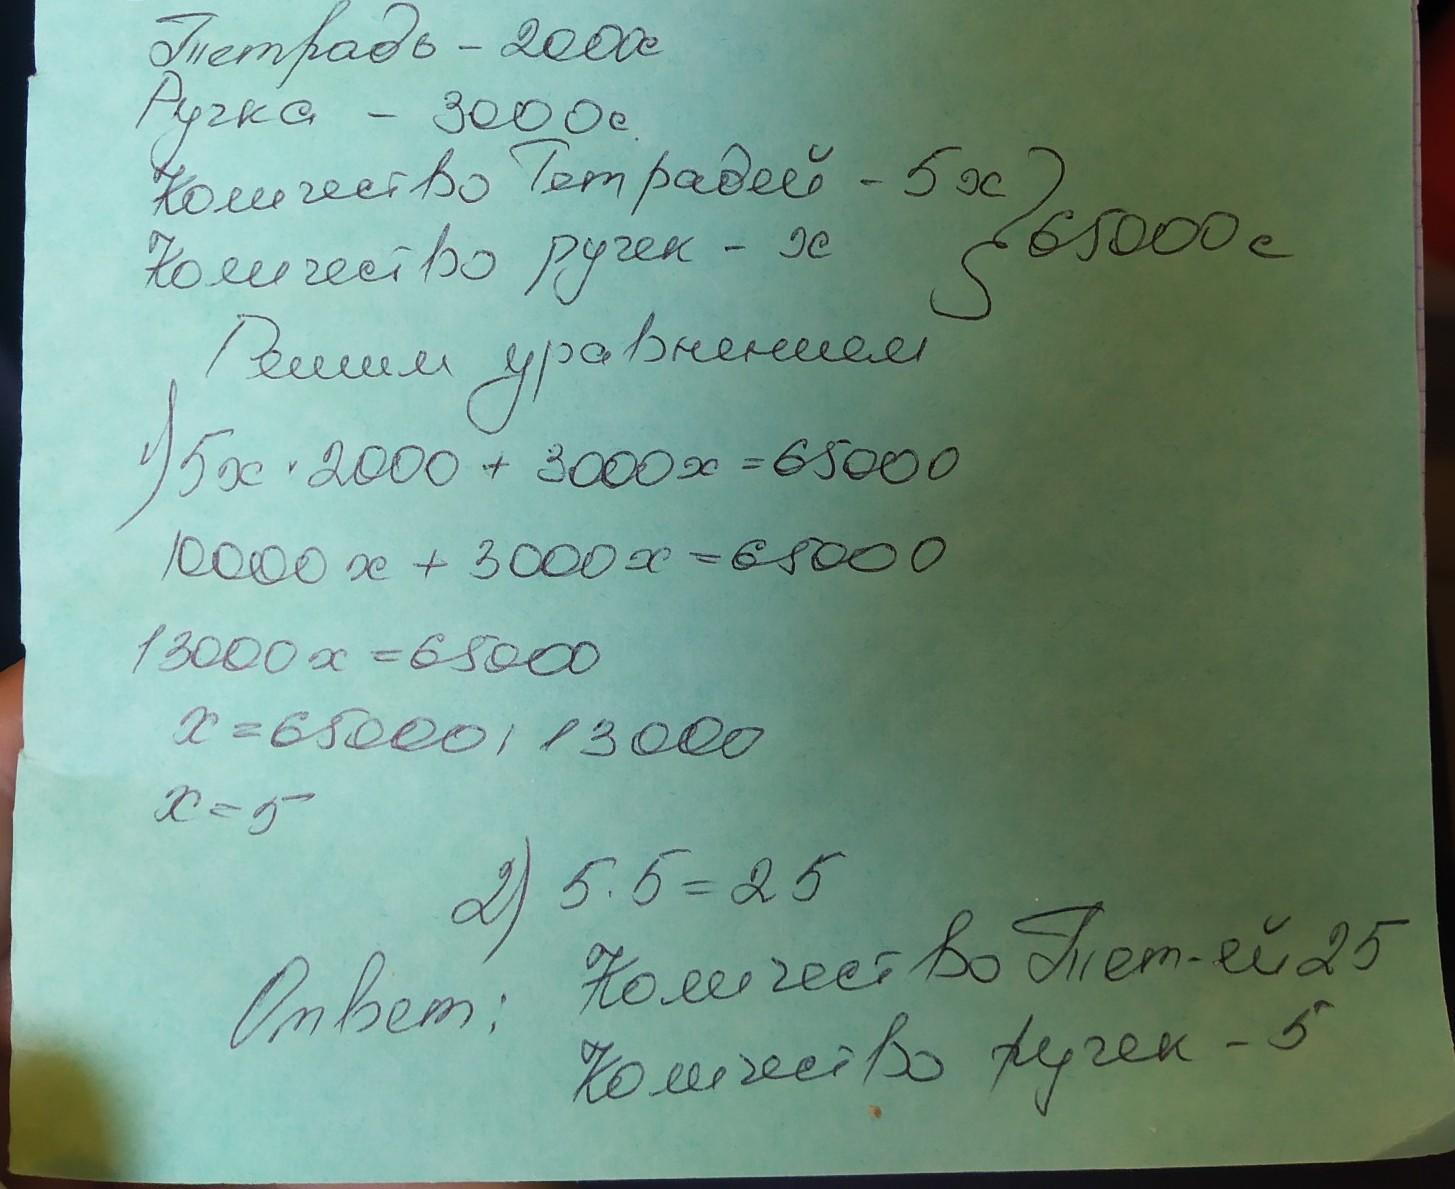 Тетрадь - 2000с
Ручка - 3000с.
Количество Тетрадей - 5х
Количество ручек - х
65000с
Решим уравнением
1) 5х · 2000 + 3000х = 65000
10000х + 3000х = 65000
13000х = 65000
х = 65000 : 13000
х = 5
2) 5 · 5 = 25
Ответ: Количество Тет-ей 25
Количество ручек - 5